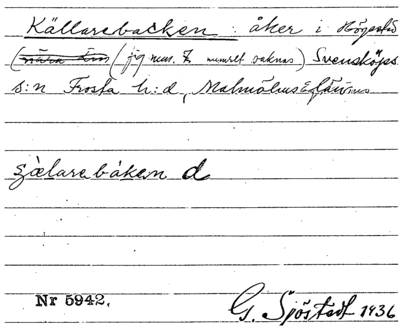 Källarebacken : åker i Högestad
(jig num. 7 numret saknas) Svensköps
s:n Frosta h:d, Malmöhus län
källarebáken d
Nr 5942.
G. Sjöstedt 1936